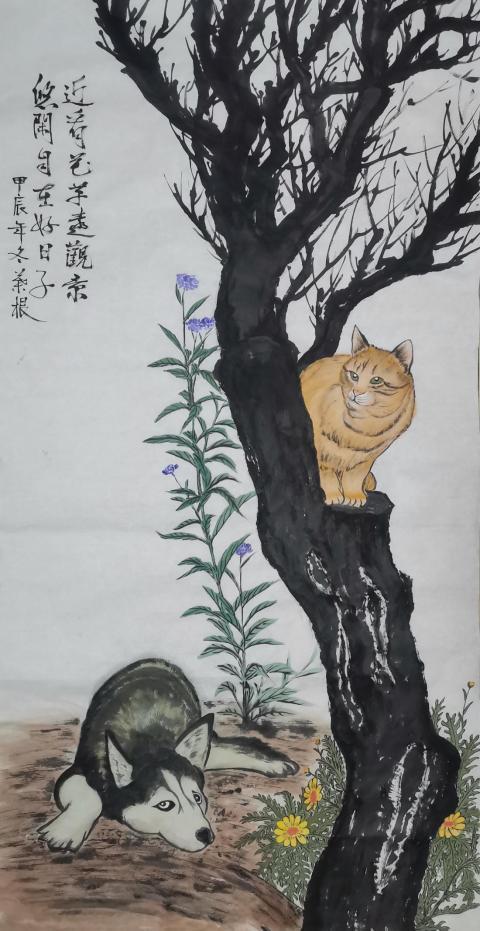 近看花草遠觀景
悠閑自在好日子
甲辰年冬義根